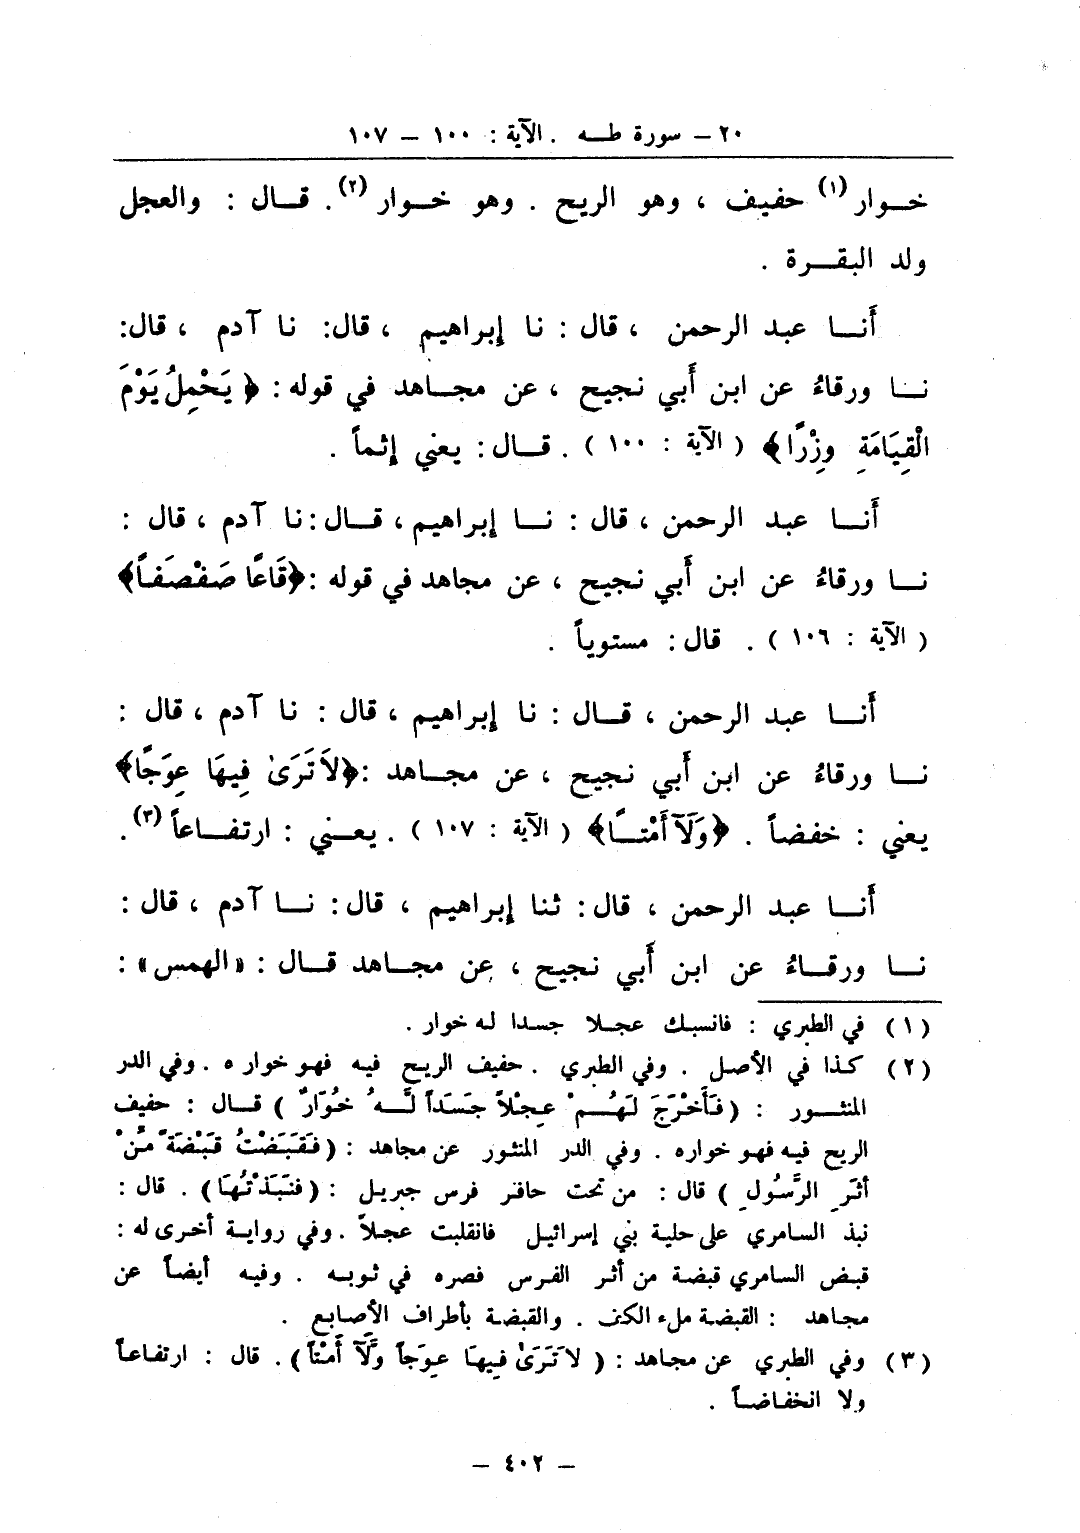 ٢٠ – سورة طه . الآية : ١٠٠ – ١٠٧
خوار (١) حفيف ، وهو الريح . وهو خوار (٢) . قال : والعجل
ولد البقرة .
أنا عبد الرحمن ، قال : نا إبراهيم ، قال : نا آدم ، قال :
نا ورقاءُ عن ابن أبي نجيح ، عن مجاهد في قوله : ﴿ يَحْمِلُ يَوْمَ
الْقِيَامَةِ وِزْرًا ﴾ ( الآية : ١٠٠ ) . قال : يعني إثماً .
أنا عبد الرحمن ، قال : نا إبراهيم ، قال : نا آدم ، قال :
نا ورقاءُ عن ابن أبي نجيح ، عن مجاهد في قوله : ﴿قَاعًا صَفْصَفاً﴾
( الآية : ١٠٦ ) . قال : مستوياً .
أنا عبد الرحمن ، قال : نا إبراهيم ، قال : نا آدم ، قال :
نا ورقاءُ عن ابن أبي نجيح ، عن مجاهد : ﴿لاَ تَرَىٰ فِيهَا عِوَجًا﴾
يعني : خفضاً . ﴿وَلَآ أَمْتاً﴾ ( الآية : ١٠٧ ) . يعني : ارتفاعاً (٣) .
أنا عبد الرحمن ، قال : ثنا إبراهيم ، قال : نا آدم ، قال :
نا ورقاءُ عن ابن أبي نجيح ، عن مجاهد قال : « الهمس » :
(١) في الطبري : فانسبك عجلا جسدا له خوار .
(٢) كذا في الأصل . وفي الطبري . حفيف الريح فيه فهو خواره . وفي الدر
المنثور : ( فَأَخْرَجَ لَهُمْ عِجْلاً جَسَداً لَّهُ خُوَارٌ ) قال : حفيف
الريح فيه فهو خواره . وفي الدر المنثور عن مجاهد : ( فَقَبَضْتُ قَبْضَةً مِّنْ
أَثَرِ الرَّسُولِ ) قال : من تحت حافر فرس جبريل : ( فَنَبَذْتُهَا ) . قال :
نبذ السامري على حلية بني إسرائيل فانقلبت عجلاً . وفي رواية أخرى له :
قبض السامري قبضة من أثر الفرس فصره في ثوبه . وفيه أيضاً عن
مجاهد : القبضة ملء الكف . والقبضة بأطراف الأصابع .
(٣) وفي الطبري عن مجاهد : ( لا تَرَىٰ فِيهَا عِوَجاً وَّلَآ أَمْتاً ) . قال : ارتفاعاً
ولا انخفاضاً .
– ٤٠٢ –